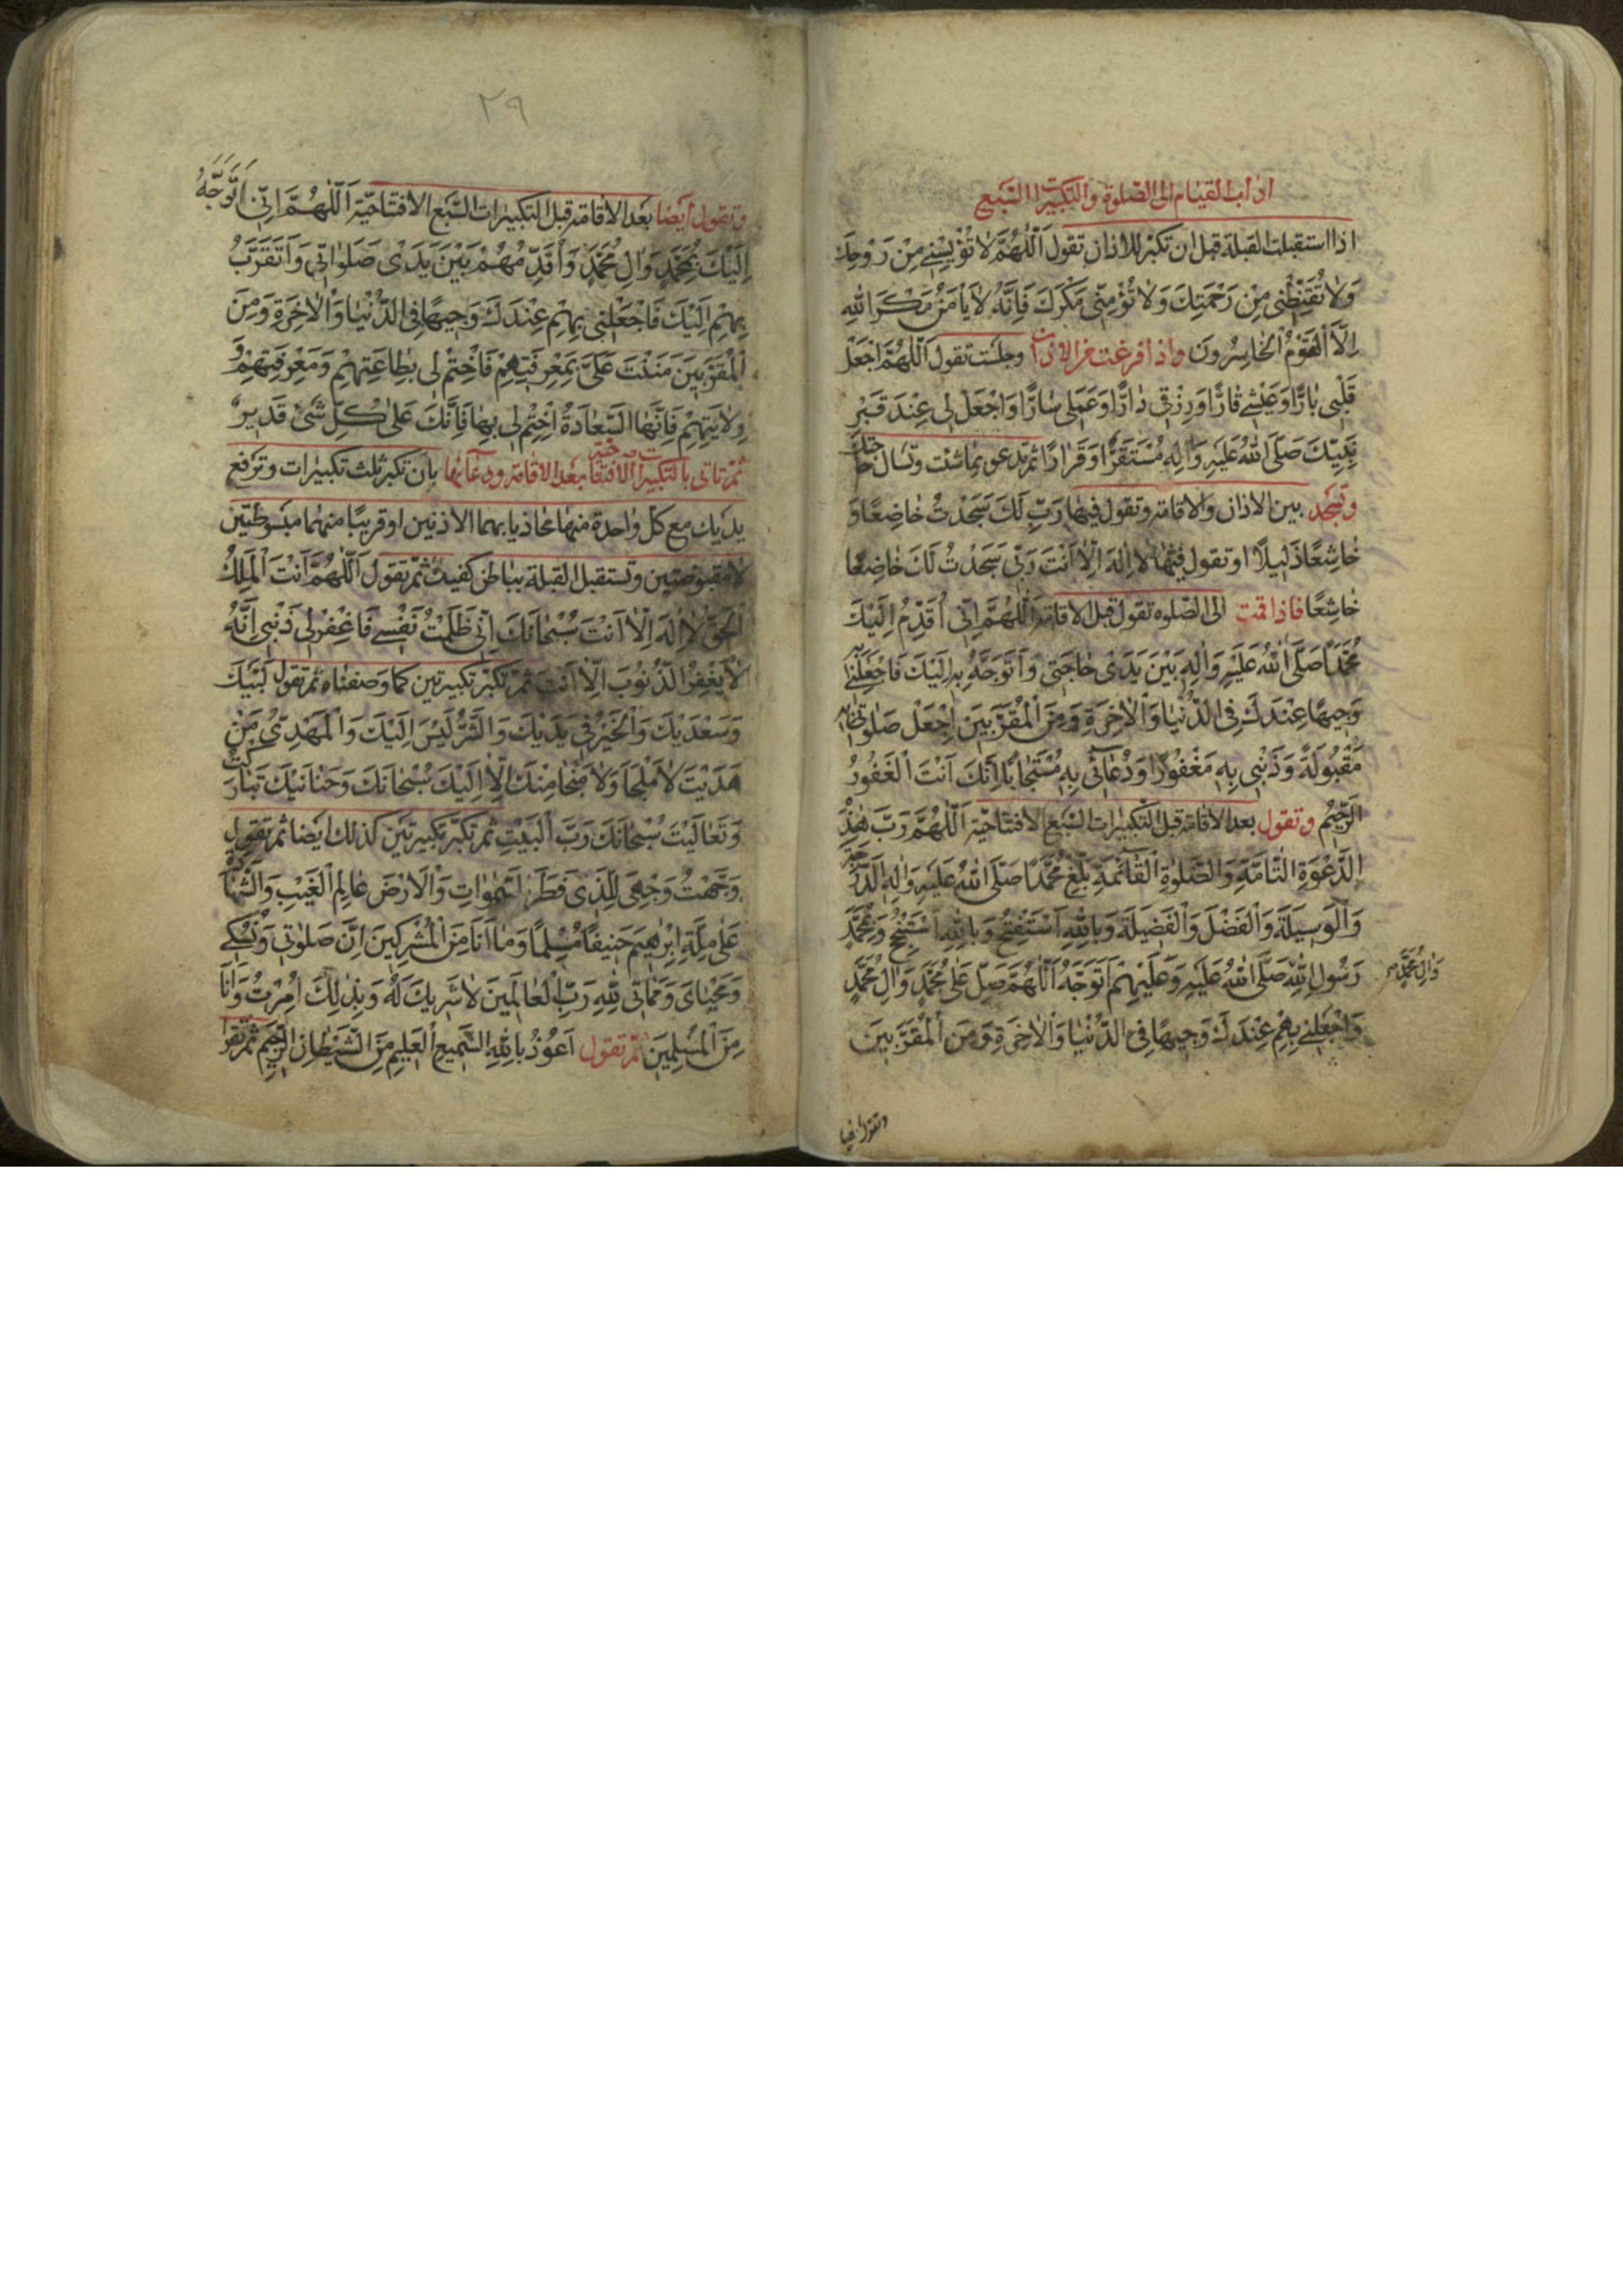 اداب القيام الى الصلوة والتكبيرات السبع
اذا استقبلت القبلة قبل ان تكبر للاذان تقول اَللّٰهُمَّ لاٰ تُؤْيِسْنِي مِنْ رَوْحِكَ
وَلاٰ تُقَنِّطْنِي مِنْ رَحْمَتِكَ وَلاٰ تُؤْمِنِّي مَكْرَكَ فَاِنَّهُ لاٰ يَأْمَنُ مَكْرَ اللهِ
اِلاَّ الْقَوْمُ الْخٰاسِرُونَ واذا فرغت من الاذان وجلست تقول اَللّٰهُمَّ اجْعَلْ
قَلْبِي بٰارًّا وَعَيْشِي قٰارًّا وَرِزْقِي دٰارًّا وَعَمَلِي سٰارًّا وَاجْعَلْ لِي عِنْدَ قَبْرِ
نَبِيِّكَ صَلَّى اللهُ عَلَيْهِ وَاٰلِهِ مُسْتَقَرًّا وَقَرٰارًا ثم تدعو بما شئت وتسال حاجتك
وتسجد بين الاذان والاقامة وتقول فيها رَبِّ لَكَ سَجَدْتُ خٰاضِعًا وَ
خٰاشِعًا ذَلِيلاً او تقول فيها لاٰ اِلٰهَ اِلاّٰ اَنْتَ رَبِّي سَجَدْتُ لَكَ خٰاضِعًا
خٰاشِعًا فاذا قمت الى الصلوة تقول قبل الاقامة اَللّٰهُمَّ اِنِّي اُقَدِّمُ اِلَيْكَ
مُحَمَّدًا صَلَّى اللهُ عَلَيْهِ وَاٰلِهِ بَيْنَ يَدَىْ حٰاجَتِي وَاَتَوَجَّهُ بِهِ اِلَيْكَ فَاجْعَلْنِي بِهِ
وَجِيهًا عِنْدَكَ فِي الدُّنْيٰا وَالْاٰخِرَةِ وَمِنَ الْمُقَرَّبِينَ اِجْعَلْ صَلٰوتِي بِهِ
مَقْبُولَةً وَذَنْبِي بِهِ مَغْفُورًا وَدُعٰائِي بِهِ مُسْتَجٰابًا اِنَّكَ اَنْتَ الْغَفُورُ
الرَّحِيمُ وتقول بعد الاقامة قبل التكبيرات السبع الافتتاحية اَللّٰهُمَّ رَبَّ هٰذِهِ
الدَّعْوَةِ التّٰامَّةِ وَالصَّلٰوةِ الْقٰائِمَةِ بَلِّغْ مُحَمَّدًا صَلَّى اللهُ عَلَيْهِ وَاٰلِهِ الدَّرَجَةَ
وَالْوَسِيلَةَ وَالْفَضْلَ وَالْفَضِيلَةَ وَبِاللهِ اَسْتَفْتِحُ وَبِاللهِ اَسْتَنْجِحُ وَبِمُحَمَّدٍ
رَسُولِ اللهِ صَلَّى اللهُ عَلَيْهِ وَعَلَيْهِمْ اَتَوَجَّهُ اَللّٰهُمَّ صَلِّ عَلٰى مُحَمَّدٍ وَاٰلِ مُحَمَّدٍ
وَاٰلِ مُحَمَّدٍ
وَاجْعَلْنِي بِهِمْ عِنْدَكَ وَجِيهًا فِي الدُّنْيٰا وَالْاٰخِرَةِ وَمِنَ الْمُقَرَّبِينَ
وتقول ايضا
٢٩
وتقول ايضا بعد الاقامة قبل التكبيرات السبع الافتتاحية اَللّٰهُمَّ اِنِّي اَتَوَجَّهُ
اِلَيْكَ بِمُحَمَّدٍ وَاٰلِ مُحَمَّدٍ وَاُقَدِّمُهُمْ بَيْنَ يَدَىْ صَلَوٰاتِي وَاَتَقَرَّبُ
بِهِمْ اِلَيْكَ فَاجْعَلْنِي بِهِمْ عِنْدَكَ وَجِيهًا فِي الدُّنْيٰا وَالْاٰخِرَةِ وَمِنَ
الْمُقَرَّبِينَ مَنَنْتَ عَلَىَّ بِمَعْرِفَتِهِمْ فَاخْتِمْ لِي بِطٰاعَتِهِمْ وَمَعْرِفَتِهِمْ وَ
وِلاٰيَتِهِمْ فَاِنَّهَا السَّعٰادَةُ اِخْتِمْ لِي بِهٰا فَاِنَّكَ عَلٰى كُلِّ شَىْءٍ قَدِيرٌ
ثم تاتى بالتكبيرات الافتتاحية بعد الاقامة ودعائها بان تكبر ثلث تكبيرات وترفع
يديك مع كل واحدة منها محاذيا بهما الاذنين او قريبا منهما مبسوطتين
لا مقبوضتين وتستقبل القبلة بباطن كفيك ثم تقول اَللّٰهُمَّ اَنْتَ الْمَلِكُ
الْحَقُّ لاٰ اِلٰهَ اِلاّٰ اَنْتَ سُبْحٰانَكَ اِنِّي ظَلَمْتُ نَفْسِي فَاغْفِرْ لِي ذَنْبِي اِنَّهُ
لاٰ يَغْفِرُ الذُّنُوبَ اِلاّٰ اَنْتَ ثم تكبر تكبيرتين كما وصفناه ثم تقول لَبَّيْكَ
وَسَعْدَيْكَ وَالْخَيْرُ فِي يَدَيْكَ وَالشَّرُّ لَيْسَ اِلَيْكَ وَالْمَهْدِىُّ مَنْ
هَدَيْتَ لاٰ مَلْجَأَ وَلاٰ مَنْجٰا مِنْكَ اِلاّٰ اِلَيْكَ سُبْحٰانَكَ وَحَنٰانَيْكَ تَبٰارَكْتَ
وَتَعٰالَيْتَ سُبْحٰانَكَ رَبَّ الْبَيْتِ ثم تكبر تكبيرتين كذلك ايضا ثم تقول
وَجَّهْتُ وَجْهِىَ لِلَّذِي فَطَرَ السَّمٰوٰاتِ وَالْاَرْضَ عٰالِمِ الْغَيْبِ وَالشَّهٰادَةِ
عَلٰى مِلَّةِ اِبْرٰهِيمَ حَنِيفًا مُسْلِمًا وَمٰا اَنَا مِنَ الْمُشْرِكِينَ اِنَّ صَلٰوتِي وَنُسُكِي
وَمَحْيٰاىَ وَمَمٰاتِي لِلّٰهِ رَبِّ الْعٰالَمِينَ لاٰ شَرِيكَ لَهُ وَبِذٰلِكَ اُمِرْتُ وَاَنَا
مِنَ الْمُسْلِمِينَ ثم تقول اَعُوذُ بِاللهِ السَّمِيعِ الْعَلِيمِ مِنَ الشَّيْطٰانِ الرَّجِيمِ ثم تقرا